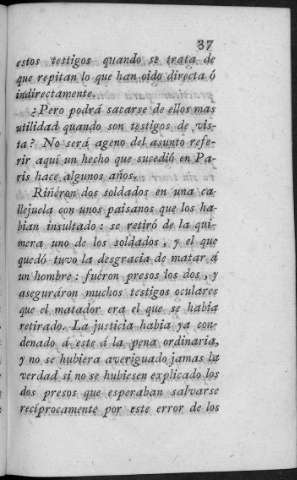 37
estos testigos quando se trata de
que repitan lo que han oido directa ó
indirectamente.
¿Pero podrá sacarse de ellos mas
utilidad quando son testigos de vis-
ta? No será ageno del asunto refe-
rir aquí un hecho que sucedió en Pa-
ris hace algunos años.
Riñéron dos soldados en una ca-
llejuela con unos paisanos que los ha-
bian insultado: se retiró de la qui-
mera uno de los soldados, y el que
quedó tuvo la desgracia de matar á
un hombre: fuéron presos los dos, y
aseguráron muchos testigos oculares
que el matador era el que se habia
retirado. La justicia habia ya con-
denado á este á la pena ordinaria,
y no se hubiera averiguado jamas la
verdad si no se hubiesen explicado los
dos presos que esperaban salvarse
recíprocamente por este error de los